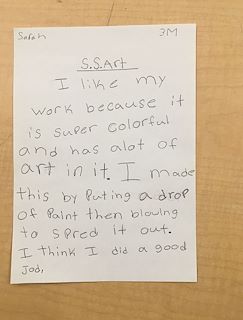 Sarah 3M
S.S.Art
I like my
work because it
is super colorful
and has alot of
art in it. I made
this by puting a drop
of paint then blowing
to spred it out.
I think I did a good
Jod,